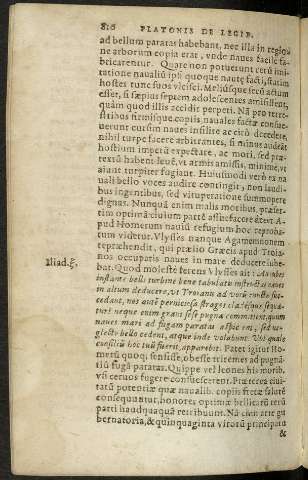 810 PLATONIS DE LEGIB.
ad bellum paratas habebant, nec illa in regione
arborum copia erat, unde naues facile fa-
bricarentur. Quare non potuerunt certi imi-
tatione naualiũ ipsi quoque nautę facti, statim
hostes tunc suos vlcisci. Meliúsque secũ actum
esset, si sæpius septem adolescentes amisissent,
quàm quod illis accidit perperã. Nã pro terre-
stribus firmisque copiis nauales factæ consue-
uerunt cursim naues insilire ac citò decedere,
nihil turpe facere arbitrantes, si minus audeãt
hostium impetũ expectare, ac mori, sed præ-
textũ habent leuẽ, vt armis amissis, minimè, vt
aiunt turpiter fugiant. Huiusmodi verò ex na
uali bello voces audire contingit, non laudi-
bus ingentibus, sed vituperatione summopere
dignas. Nunquã enim malis moribus, præser-
tim optimã ciuium partẽ assuefacere decet. A-
pud Homerum nauiũ refugium hoc reproba-
tum videtur. Vlysses nanque Agamemnonem
repræhendit, qui prælio Græcis apud Troia-
nos occupatis naues in mare deducere iube-
Iliad.ξ. bat. Quod molestè ferens Vlysses ait:
instante belli turbine bene tabulatis instructas naues
in altum deducere, vt Troianis ad
cedant, nes autẽ perniciosa strages
tur: neque enim graui sese pugna committent, quum
naues mari ad fugam paratas aspicient, sed ne-
glecto bello cedent, atque inde volabunt. Vnde quale
consiliũ hoc tuũ fuerit, apparebit. Patet igitur Ho
merũ quoq; sensisse, obesse triremes ad pugnã-
tiũ fugã paratas. Quippe vel leones his morib.
vti ceruos fugere consuescerent. Præterea ciui-
tatũ potentiæ quæ naualib. copiis fretæ salutẽ
consequuntur, honores optimæ bellicarũ rerũ
parti haudquaquã retribuunt. Nã cùm arte gu
bernatoria, & quinquaginta virorũ principatu
&